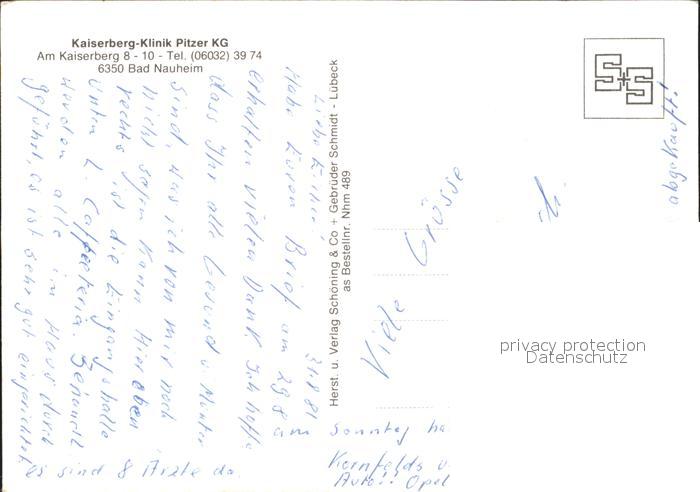 Kaiserberg-Klinik Pitzer KG
Am Kaiserberg 8 - 10 - Tel. (06032) 39 74
6350 Bad Nauheim
31.8.81
Habe Euren Brief am 29.8
erhalten vielen Dank. Ich hoffe
dass Ihr alle Gesund u. Munter
sind, was ich von mir noch
nicht sagen kann. Hier oben
rechts ist die Eingangshalle
unten L. Caffeteria.
werden alle im Haus durch
geführt, es ist sehr gut eingerichtet
es sind 8 Ärzte da.
am
Sonntag ha
Kornfelds u.
Auto: Opel
Viele Grüsse
abgekauft!
Herst. u. Verlag Schöning & Co + Gebrüder Schmidt - Lübeck
as Bestellnr. Nhm 489
S+S
privacy protection
Datenschutz